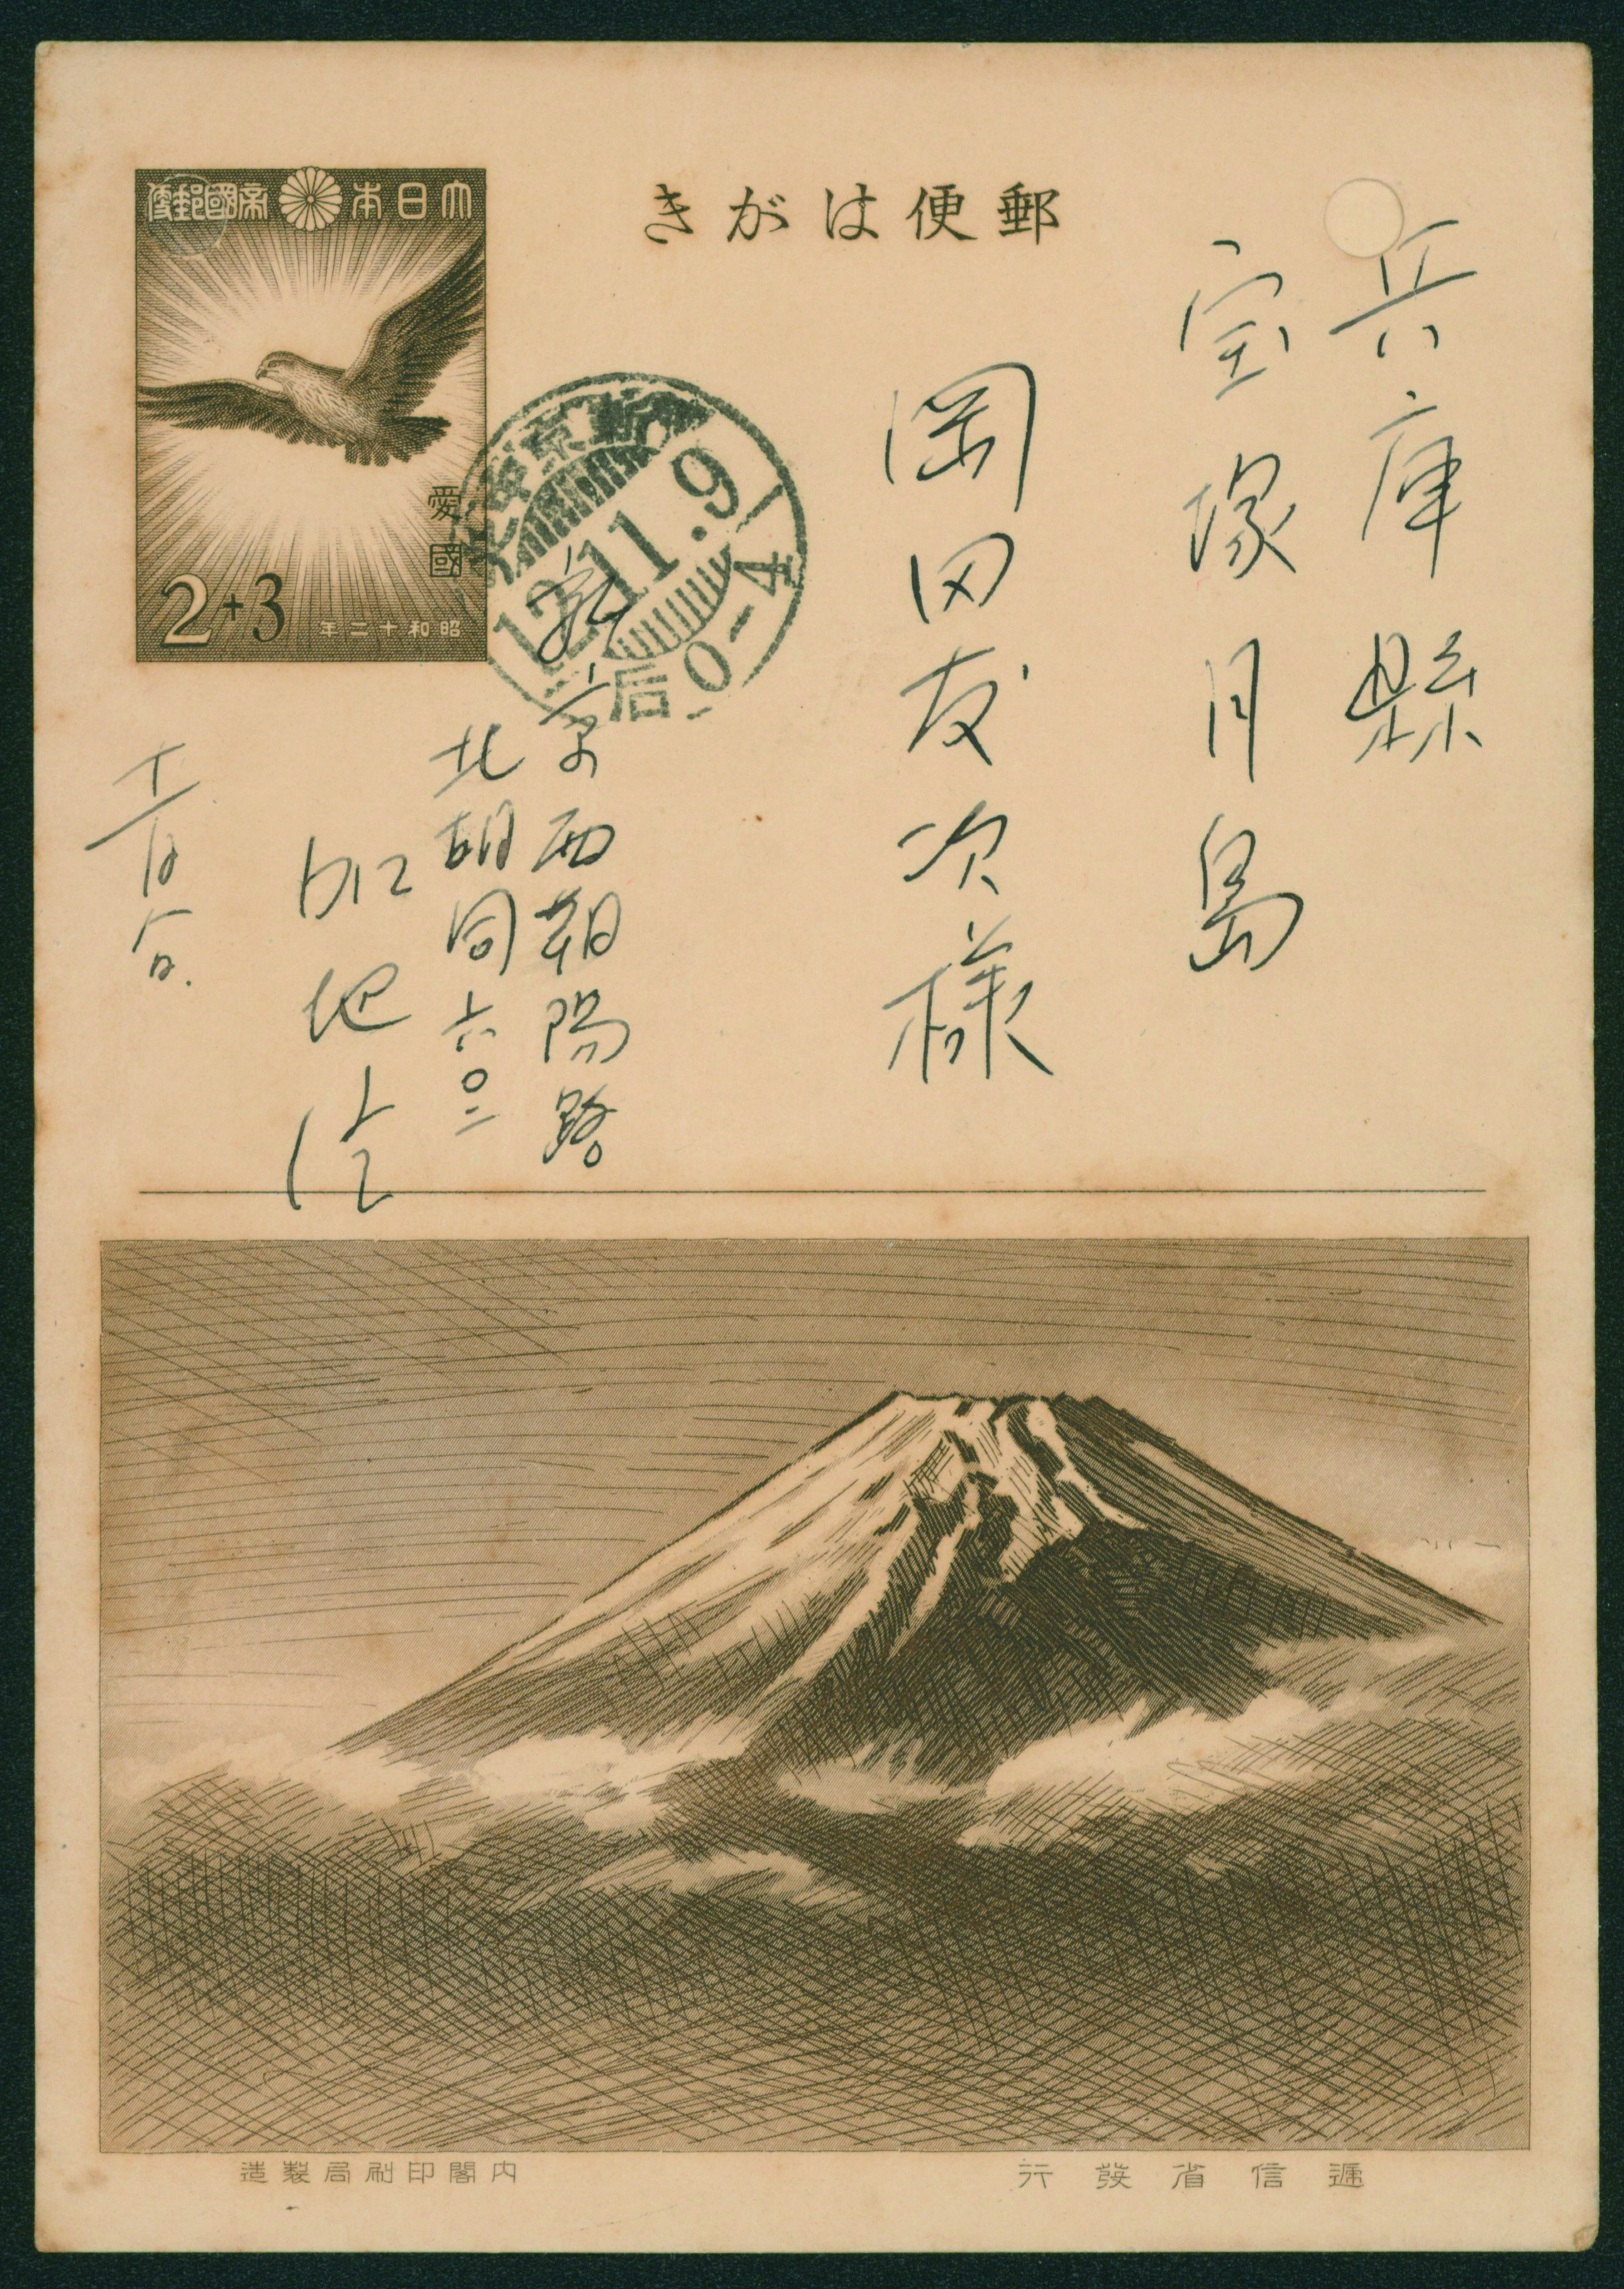 郵便はがき
大日本帝國郵便
愛國
2+3
昭和十二年
12.11.9
后0-4
兵庫縣
宝塚月島
岡田友次様
新京西朝陽路
北胡同六〇二
十一月八日
遞信省發行
内閣印刷局製造